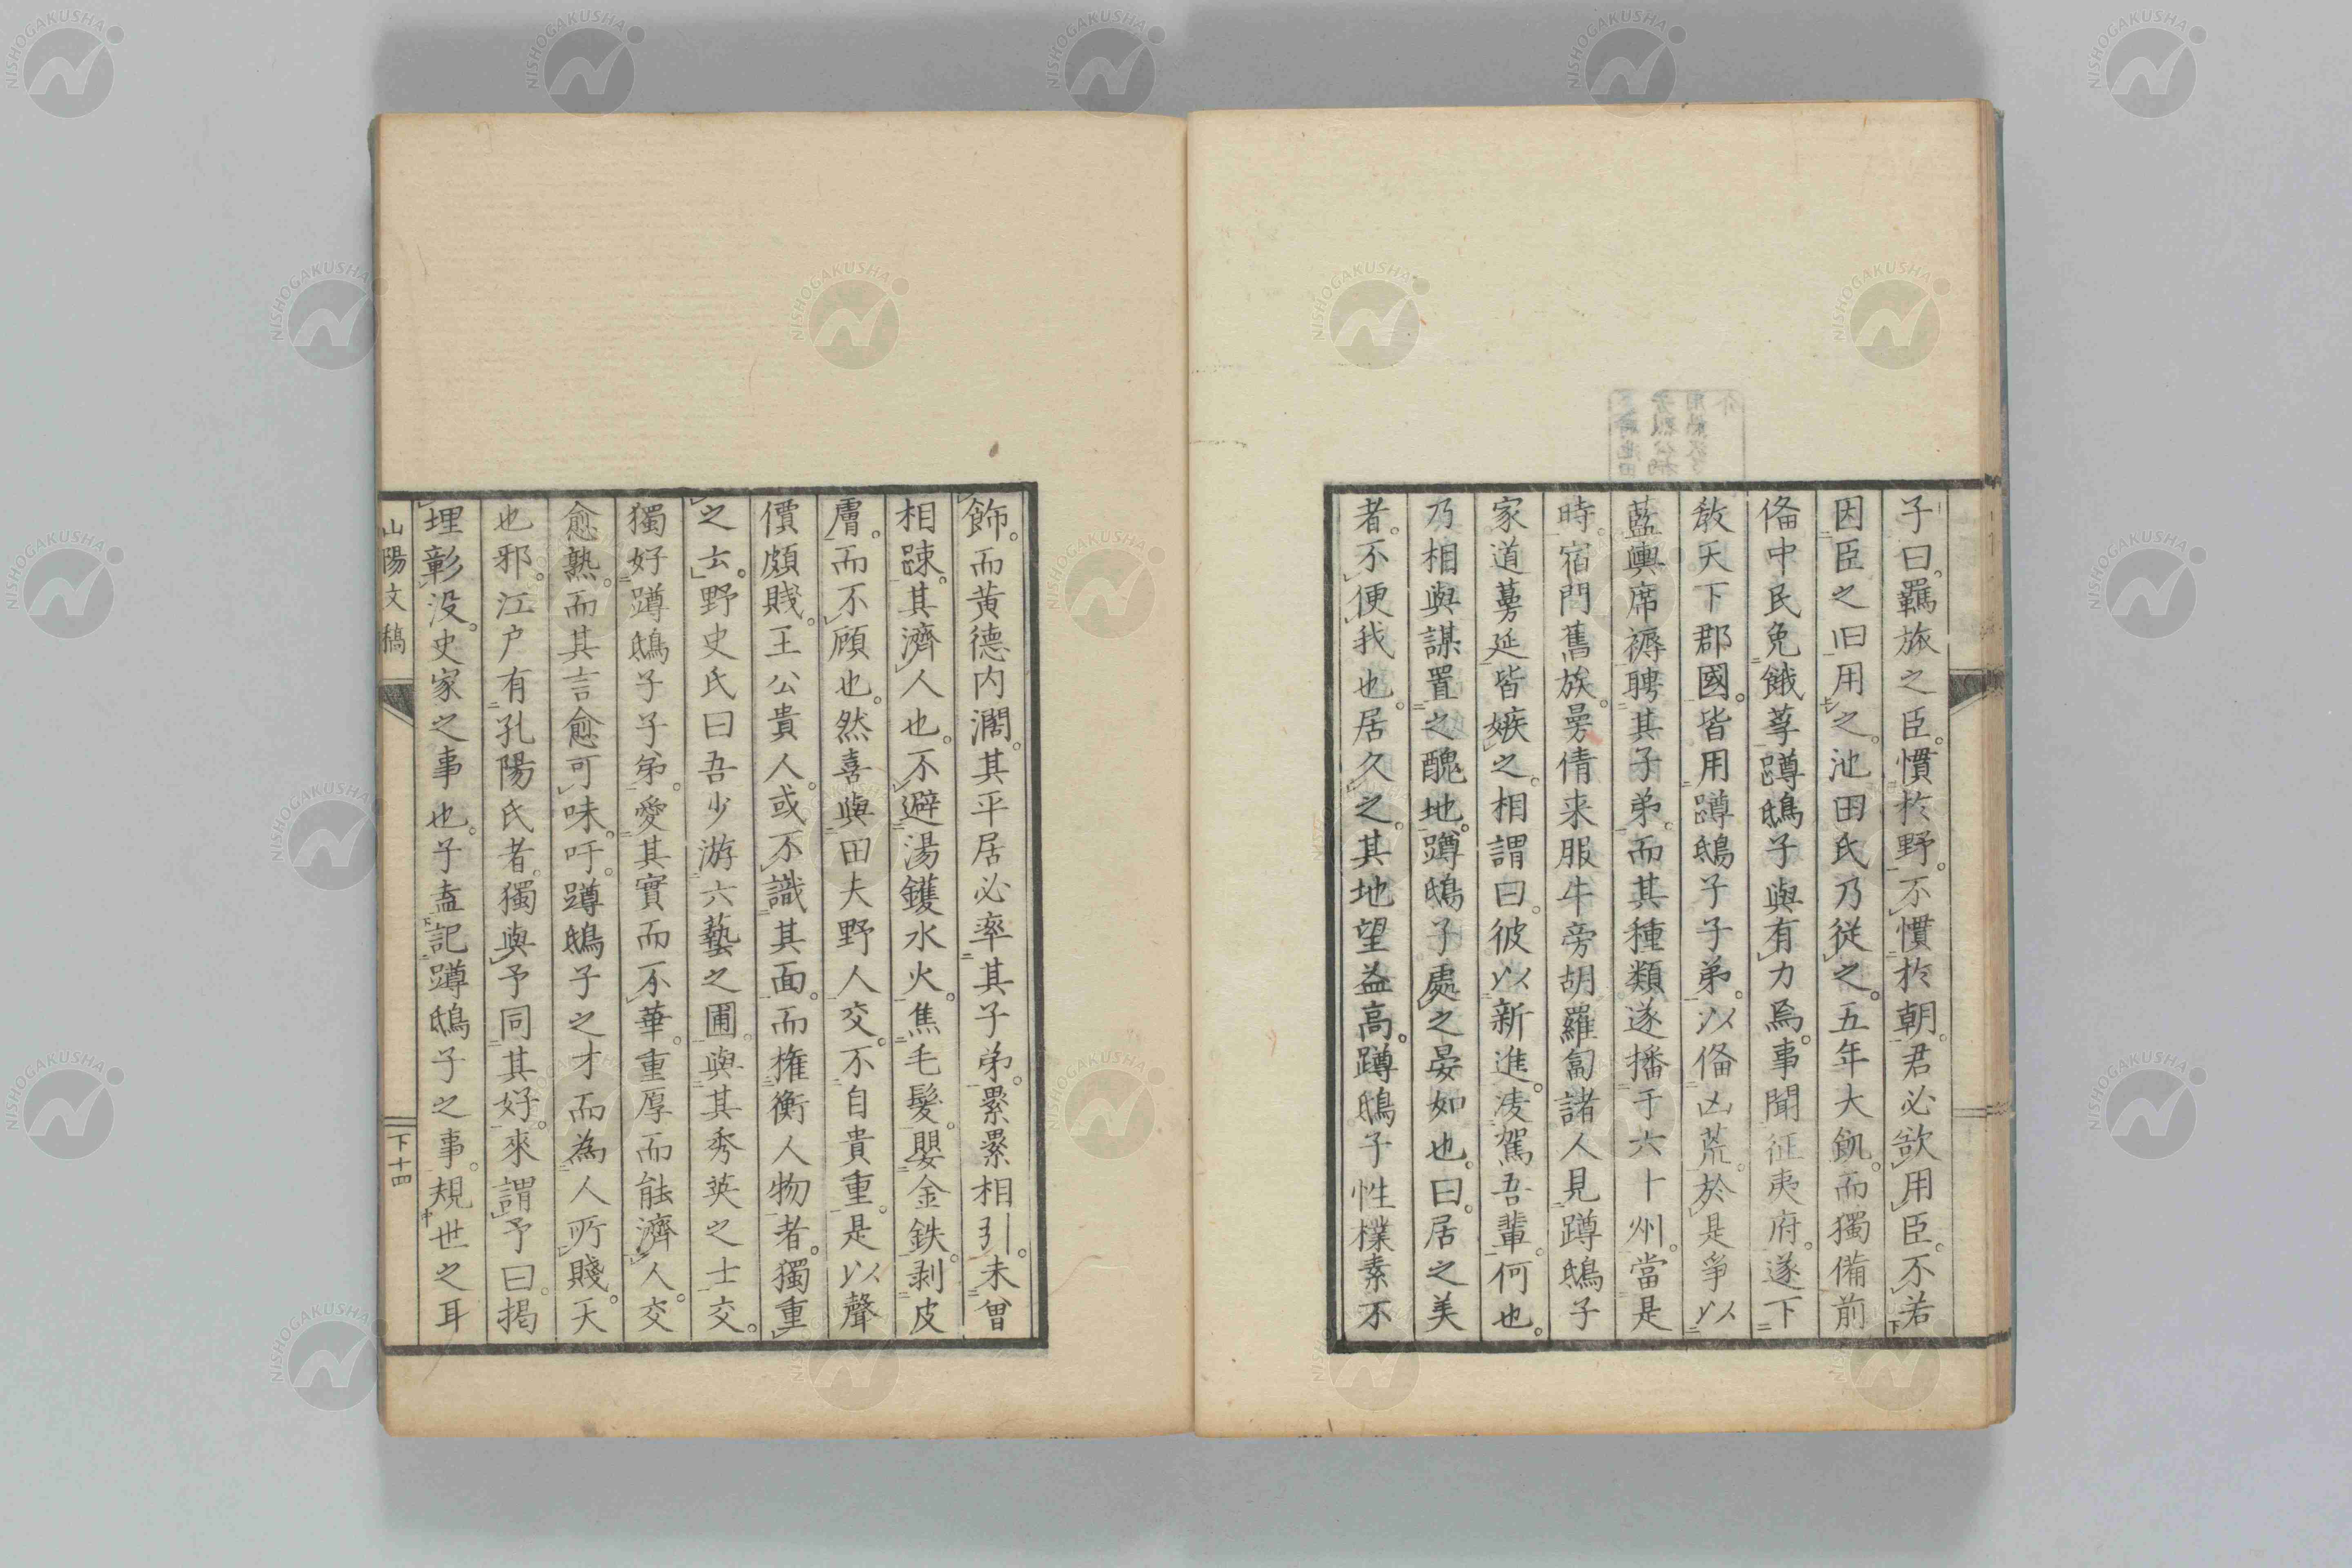 子曰。羈旅之臣。慣於野。不慣於朝。君必欲用臣。不若
因臣之旧用之。池田氏乃従之。五年大飢。而獨備前
俻中民免餓莩。蹲鴟子與有力焉。事聞征夷府。遂下
敎天下郡國。皆用蹲鴟子子弟。以俻凶荒。於是爭以
藍輿席褥聘其子弟。而其種類遂播于六十州。當是
時。宿門舊族。曼倩来服牛旁胡羅匐諸人見蹲鴟子
家道蔓延。皆嫉之。相謂曰。彼以新進。凌駕吾輩。何也。
乃相與謀置之醜地。蹲鴟子處之晏如也。曰。居之美
者。不便我也。居久之。其地望益高。蹲鴟子性樸素不
飾。而黄德内濶。其平居必率其子弟。累累相引。未曾
相踈。其濟人也。不避湯鑊水火。焦毛髮。嬰金鉄。剥皮
膚。而不顧也。然喜與田夫野人交。不自貴重。是以聲
價頗賤。王公貴人。或不識其面。而権衡人物者。獨重
之云。野史氏曰吾少游六藝之圃。與其秀英之士交。
獨好蹲鴟子子弟。愛其實而不華。重厚而能濟人。交
愈熟。而其言愈可味。吁。蹲鴟子之才而為人所賤。天
也邪。江户有孔陽氏者。獨與予同其好。來謂予曰。掲
埋彰没。史家之事也。子盍記蹲鴟子之事。規世之耳
山陽文稿
下十四
NISHOGAKUSHA